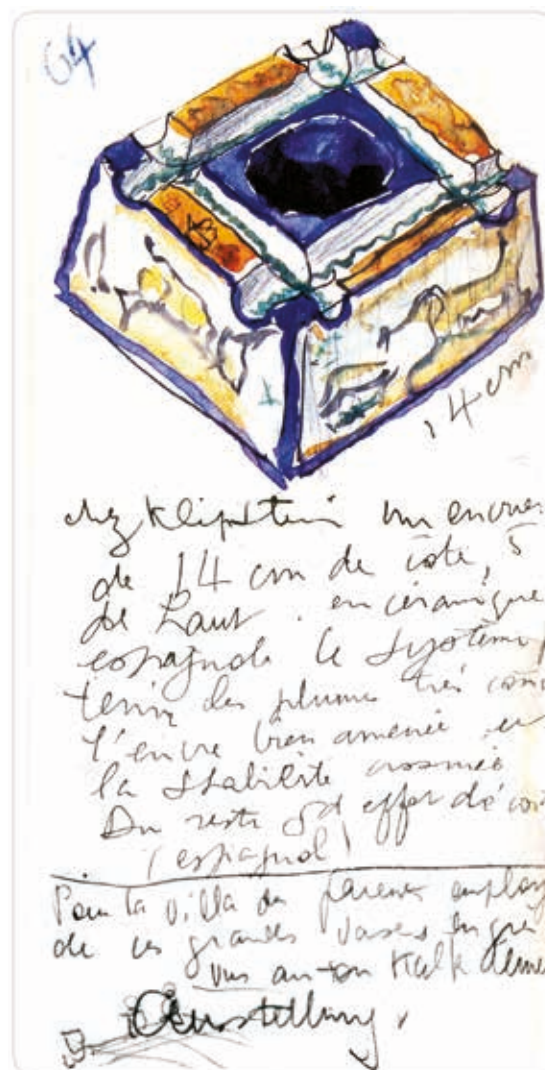 64
14 cm
chez Klipstein un encrier
de 14 cm de côté, 5
de haut. en céramique
espagnole le système
tenir des plumes très
l'encre bien amenée et
la stabilité assurée
Du reste gd effet
(espagnol)
Pour la villa des parents
de ces grands vases en
vus au
Ausstellung.